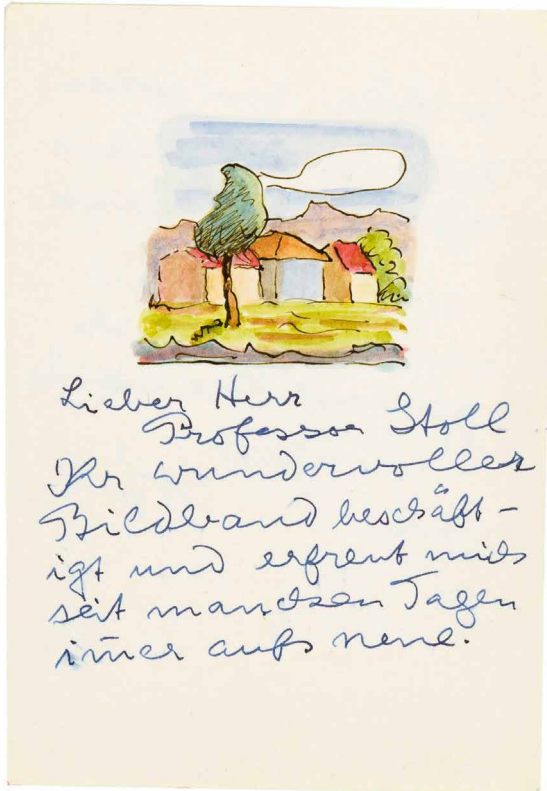 Lieber Herr
Professor Stoll
Ihr wundervoller
Bildband beschäft-
igt und erfreut mich
seit manchen Tagen
im̄er aufs neue.